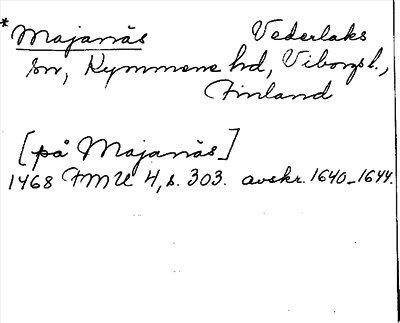 *Majanäs Vederlaks
sn, Kymmene hd, Viborgs l.,
Finland
[på Majanäs]
1468 FMU 4, s. 303. avskr. 1640-1644.